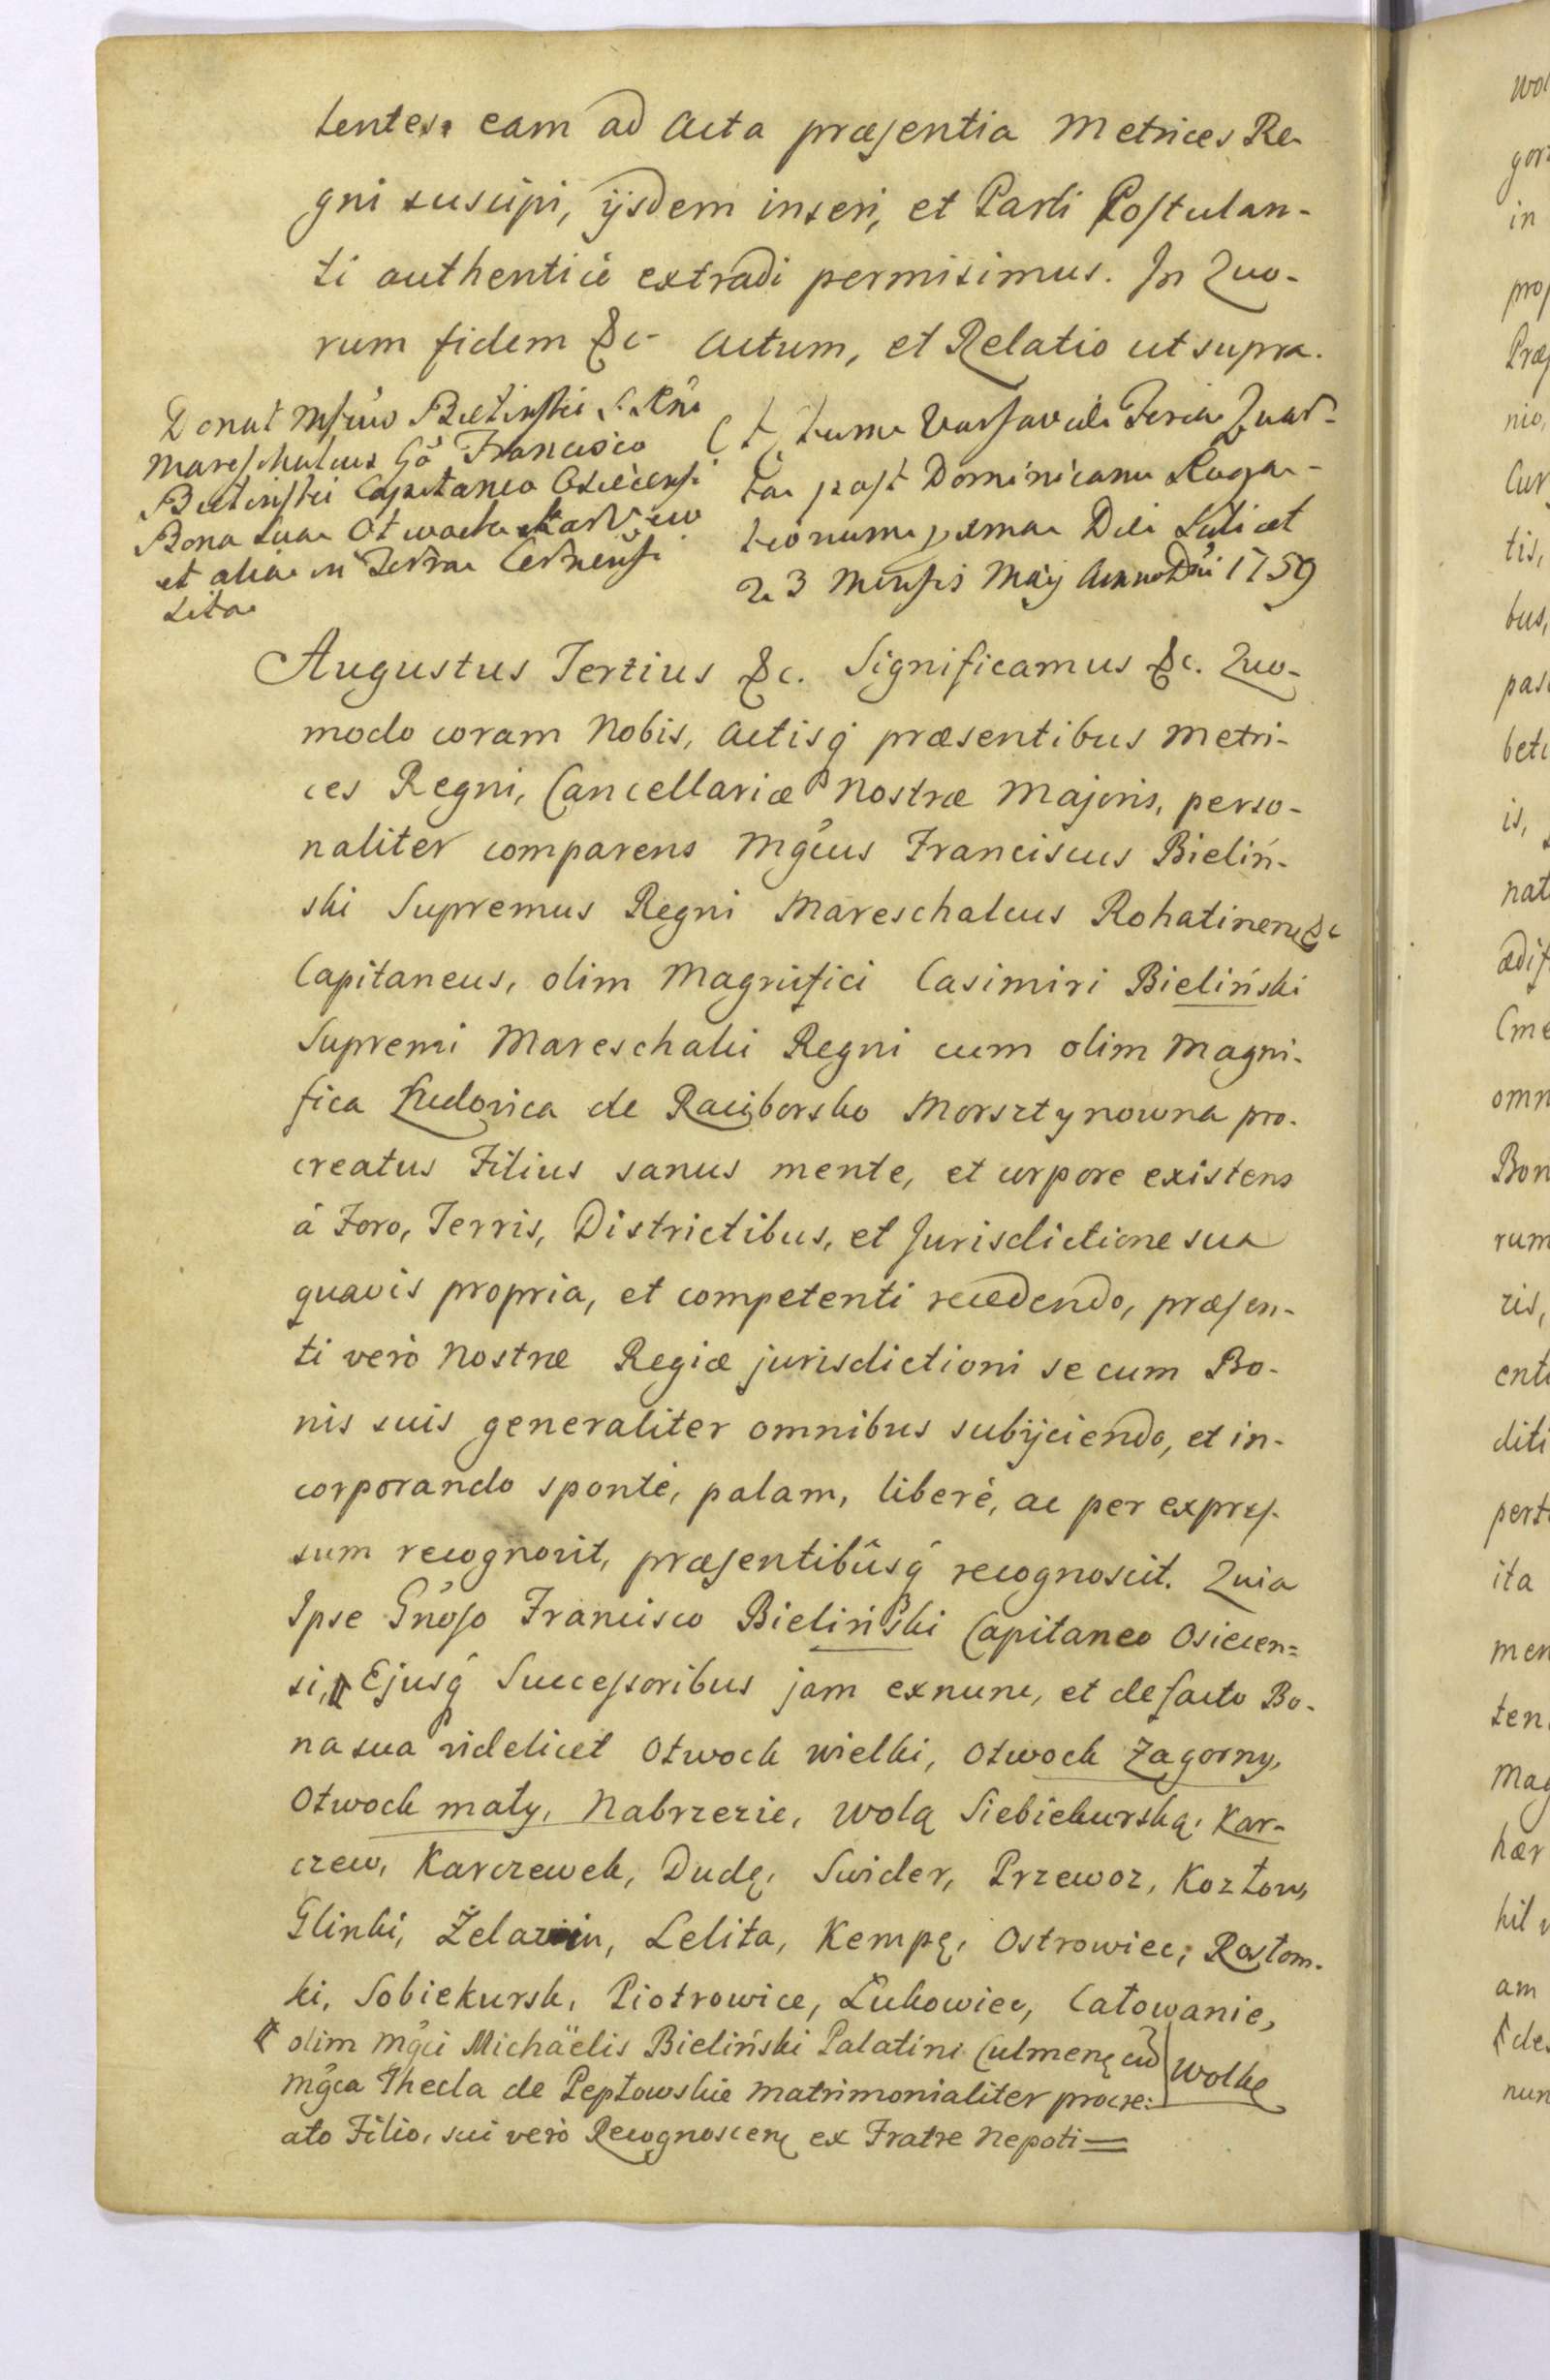 tentes eam ad Acta præsentia Metrices Re-
gni suscipi, ijsdem inseri, et Parti Postulan-
ti authenticè extradi permisimus. In Quo-
rum fidem &c- Actum, et Relatio ut supra.
Donat Mfcus Bielinski S. Rni
Mareschalcus Gö Francisco
Bielinski Capitaneo Osiecensi
Bona sua Otwock et Karczew
et alia in Terra Cernensi
sita
Actum Varsaviæ Feria Quar-
ta post Dominicam Roga-
tionum pxma Die Scilicet
23 Mensis Maij Anno Dni 1759
Augustus Tertius &c. Significamus &c. Quo-
modo coram Nobis, Actisq præsentibus Metri-
ces Regni, Cancellariæ Nostræ Majoris, perso-
naliter comparens Mgcus Franciscus Bieliń-
ski Supremus Regni Mareschalcus Rohatinen &c
Capitaneus, olim Magnifici Casimiri Bieliński
Supremi Mareschalci Regni cum olim Magni-
fica Ludovica de Raciborsko Morsztynowna pro-
creatus Filius sanus mente, et corpore existens
á Foro, Terris, Districtibus, et Jurisdictione sua
quavis propria, et competenti recedendo, præsen-
ti verò Nostræ Regiæ jurisdictioni se cum Bo-
nis suis generaliter omnibus subijciendo, et in-
corporando spontè, palam, liberè, ac per expres-
sum recognovit, præsentibûsq recognoscit. Quia
Ipse Gnoso Francisco Bieliński Capitaneo Osiecen=
si, Ejusq Successoribus jam exnunc, et defacto Bo-
na sua videlicet Otwock wielki, Otwock Zagorny,
Otwock mały, Nabrzezie, Wolą Siebiekurską, Kar-
czew, Karczewek, Dudę, Swider, Przewoz, Kozłow,
Glinki, Żelazin, Lelita, Kempę, Ostrowiec, Rosłom-
ki, Sobiekursk, Piotrowice, Łukowiec, Całowanie,
olim Mgci Michäelis Bieliński Palatini Culmen cũ
Mgca Thecla de Pepłowskie matrimonialiter procre:
ato Filio, sui verò Recognoscen ex Fratre Nepoti=
Wolkę